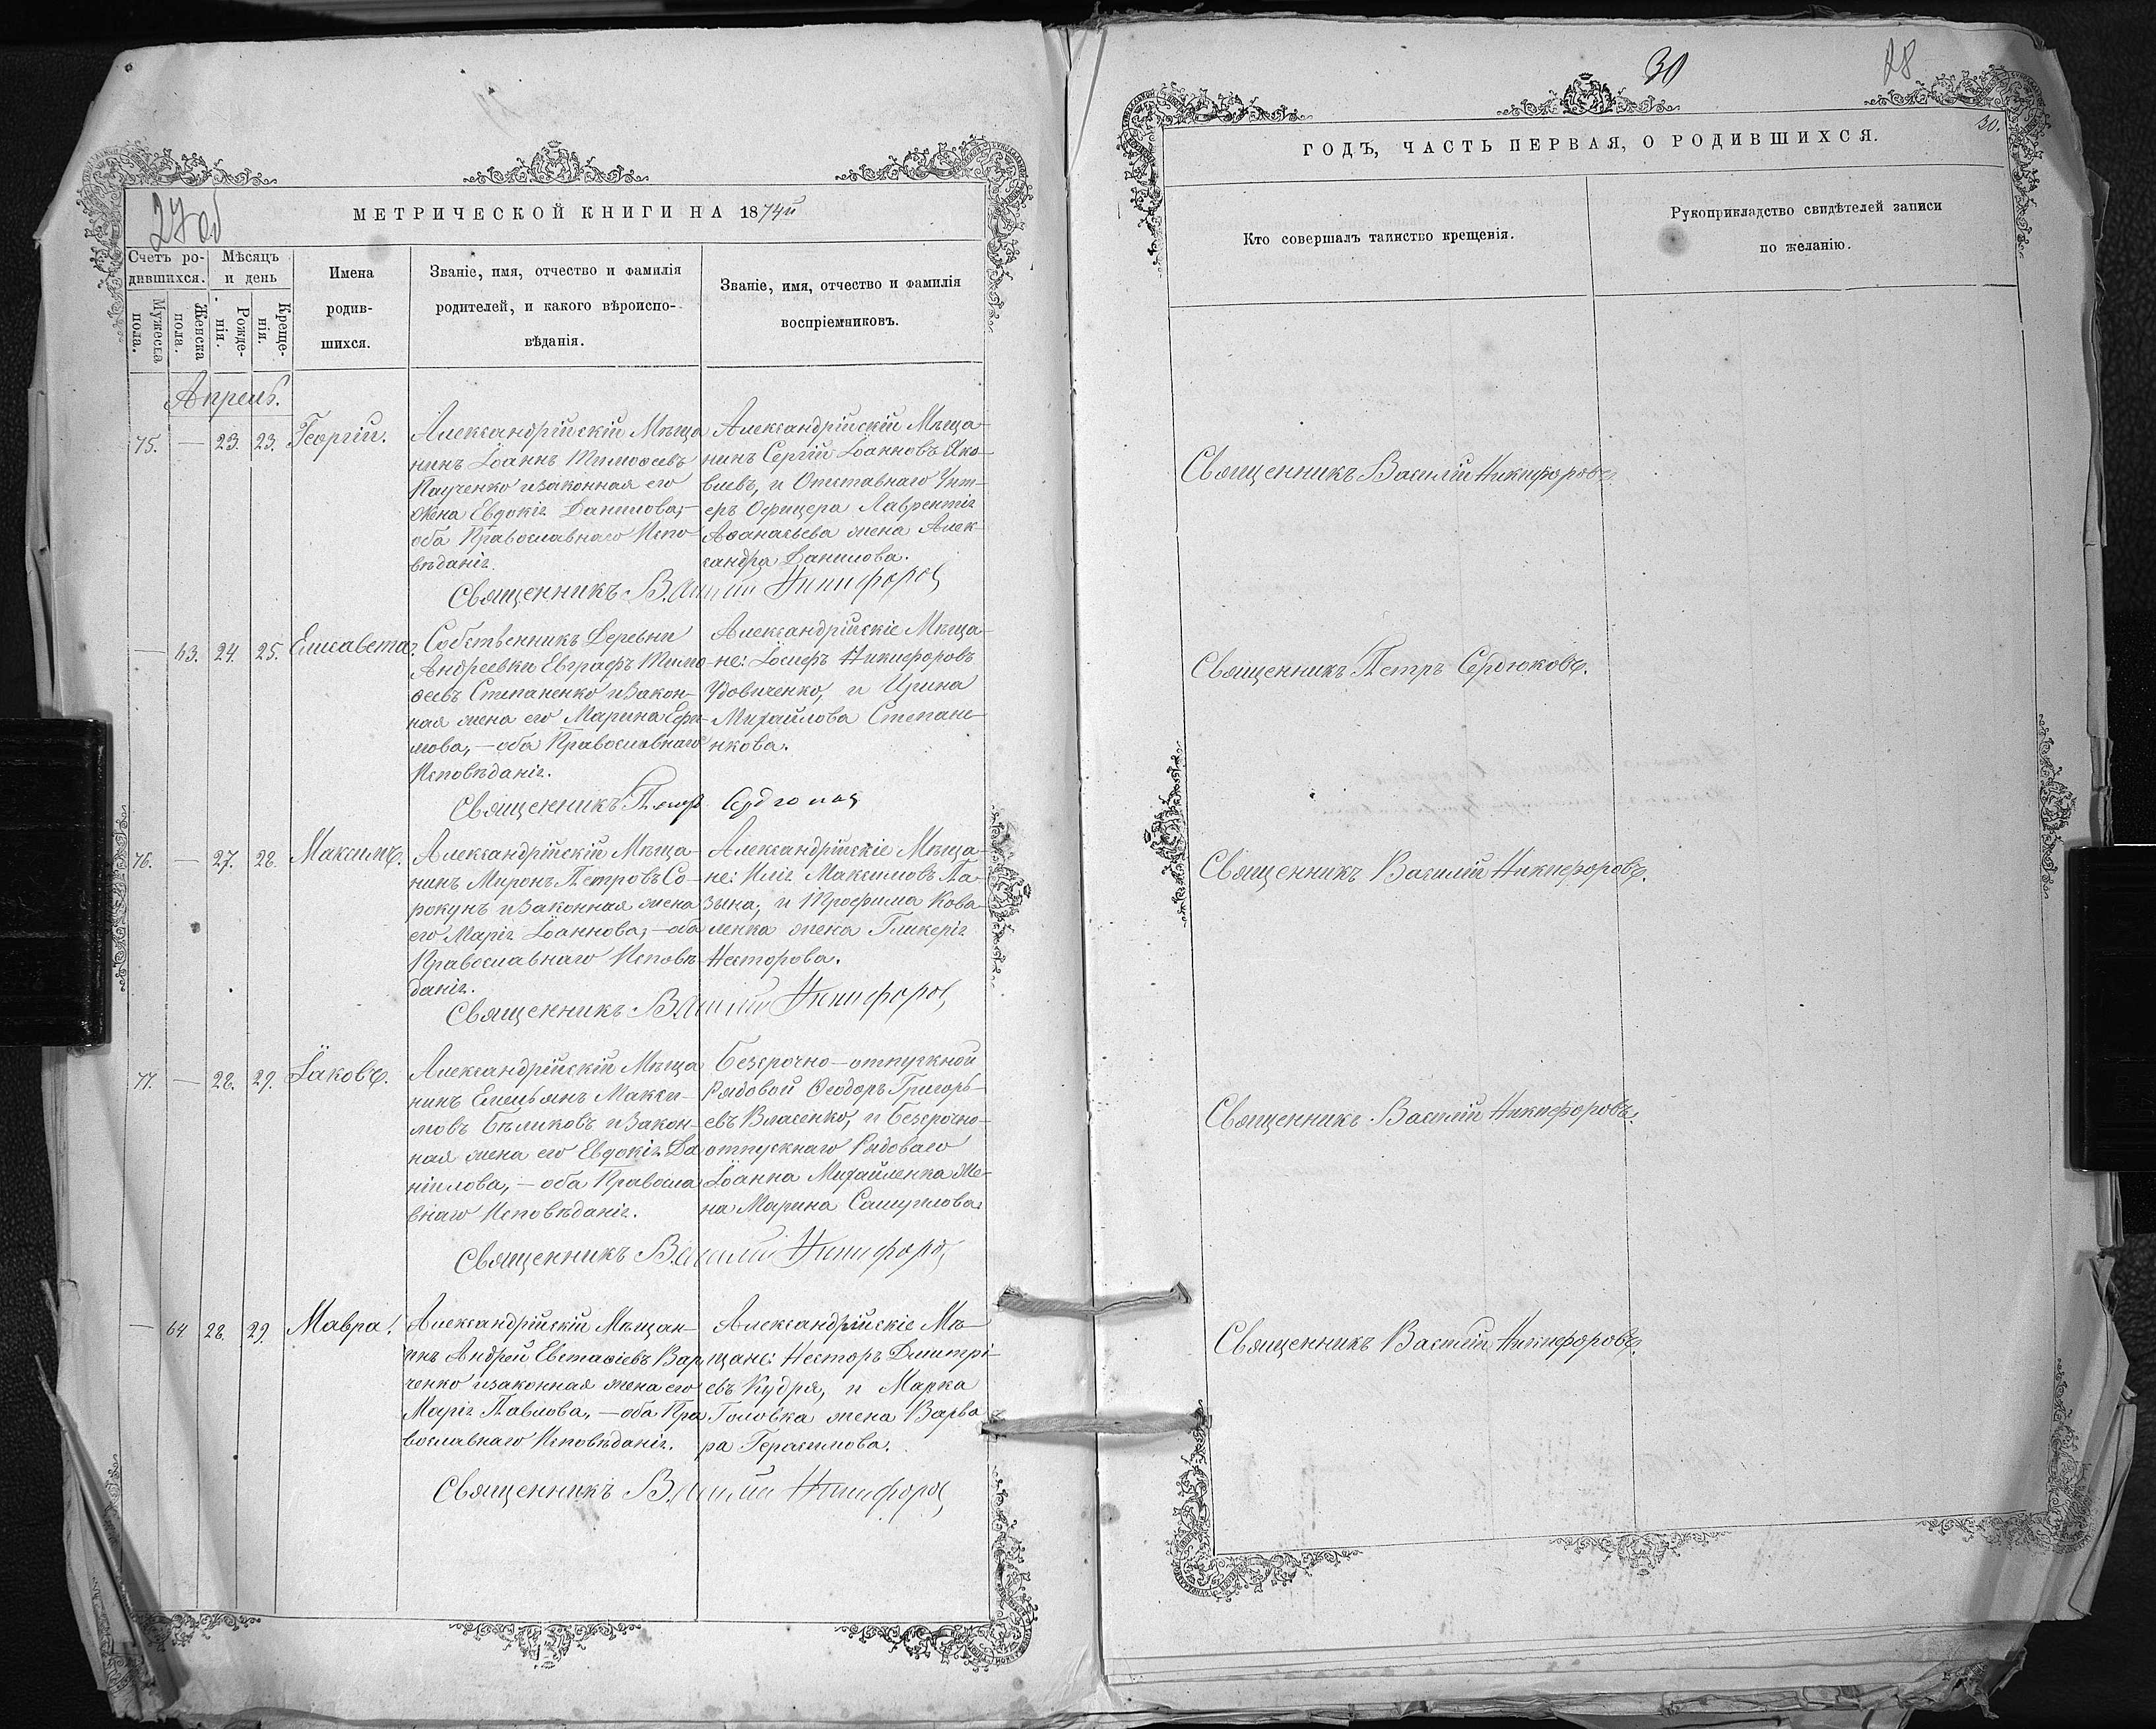 27 об
МЕТРИЧЕСКОЙ КНИГИ НА 1874й
Счетъ ро-
дившихся.
Мѣсяцъ
и день
Мужеска
пола.
Женска
пола.
Рожде-
нія.
Креще-
нія.
Имена
родив-
шихся.
Званіе, имя, отчество и фамилія
родителей, и какого вѣроиспо-
вѣданія.
Званіе, имя, отчество и фамилія
воспріемниковъ.
Апрель.
75. — 23. 23. Георгій.
Александрійскій Мѣща
нинъ Іоаннъ Тимоѳеевъ
и законная его
жена Евдокія Данилова,—
оба Православнаго Испо-
вѣданія.
Александрійскій Мѣща-
нинъ Сергій Іоанновъ Яко-
влевъ, и Отставнаго Унт-
еръ Офицера Лаврентія
Аѳанасьева жена Алек-
сандра Данилова.
Священникъ Василій Никифоровъ
— 63. 24. 25. Елисавета.
Собственникъ Деревни
Андреевки Евграфъ Тимо-
ѳеевъ Степаненко и закон-
ная жена его Марина Ефи-
мова,— оба Православнаго
Исповѣданія.
Александрійскіе Мѣща-
не: Іосифъ Никифоровъ
Удовиченко, и Ирина
Михайлова Степане-
нкова.
Священникъ Петръ Сердюковъ
76. — 27. 28. Максимъ.
Александрійскій Мѣща-
нинъ Миронъ Петровъ Со-
рокунъ и законная жена
его Марія Іоаннова,— оба
Православнаго Исповѣ-
данія.
Александрійскіе Мѣща-
не: Илія Максимовъ Па-
зына, и Трофима Кова-
ленка жена Гликерія
Несторова.
Священникъ Василій Никифоровъ
77. — 28. 29. Іаковъ.
Александрійскій Мѣща
нинъ Емельянъ Макси-
мовъ Бѣликовъ и закон-
ная жена его Евдокія Да
ніилова,— оба Правосла
внаго Исповѣданія.
Безсрочно-отпускной
Рядовой Ѳеодоръ Григорь-
евъ Власенко, и Безсрочно-
отпускнаго Рядоваго
Іоанна Михайленка же-
на Марина Самуилова.
Священникъ Василій Никифоровъ
— 64 28. 29. Мавра.
Александрійскій Мѣщан-
инъ Андрей Евстаѳіевъ Вар
ченко и законная жена его
Марія Павлова,— оба Пра
вославнаго Исповѣданія.
Александрійскіе Мѣ-
щане: Несторъ Димитрі-
евъ Кудря, и Марка
Головка жена Варва
ра Герасимова.
Священникъ Василій Никифоровъ
30
28
30.
ГОДЪ, ЧАСТЬ ПЕРВАЯ, О РОДИВШИХСЯ.
Кто совершалъ таинство крещенія.
Рукоприкладство свидѣтелей записи
по желанію.
Священникъ Василій Никифоровъ.
Священникъ Петръ Сердюковъ.
Священникъ Василій Никифоровъ.
Священникъ Василій Никифоровъ.
Священникъ Василій Никифоровъ.